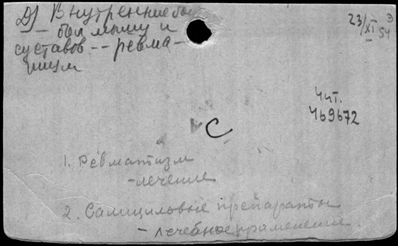 Д) Внутренние бол
- бол мышц и
суставов -- ревма-
тизм
23/XI 54
3
Чит.
469672
С
1. Ревматизм
-лечение
2. Салициловые препараты
- лечебное применение